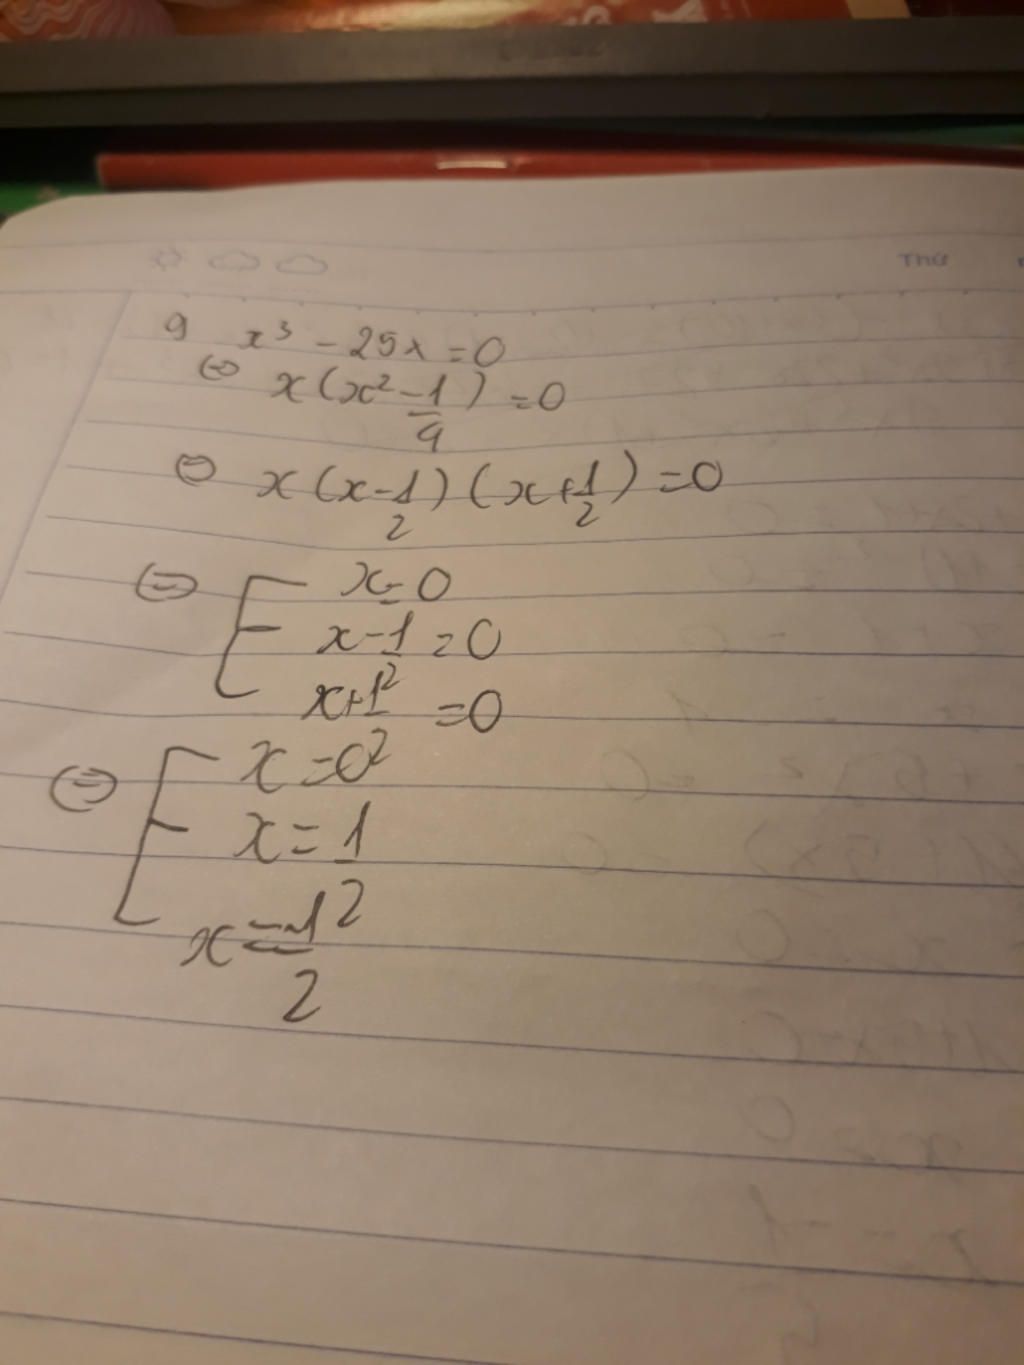 Thứ
g x³ - 25x = 0
⇔ x(x² - 1/4) = 0
⇔ x(x - 1/2)(x + 1/2) = 0
⇔ [ x = 0
x - 1/2 = 0
x + 1/2 = 0
⇔ [ x = 0
x = 1/2
x = -1/2